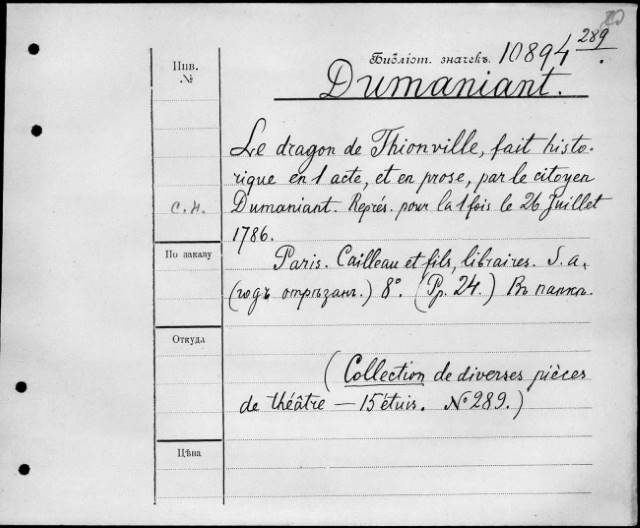 Инв.
№
Библіот. значекъ. 10894 289.
Dumaniant.
Le dragon de Thionville, fait histo-
rique en 1 acte, et en prose, par le citoyen
с.н.
Dumaniant. Représ. pour la 1 fois le 26 Juillet
1786.
По заказу
Paris. Cailleau et fils, libraires. S. a.
(годъ отрѣзанъ.) 8°. (Pp. 24.) Въ папкѣ.
Откуда
(Collection de diverses pièces
de théâtre — 15 étuis. № 289.)
Цѣна